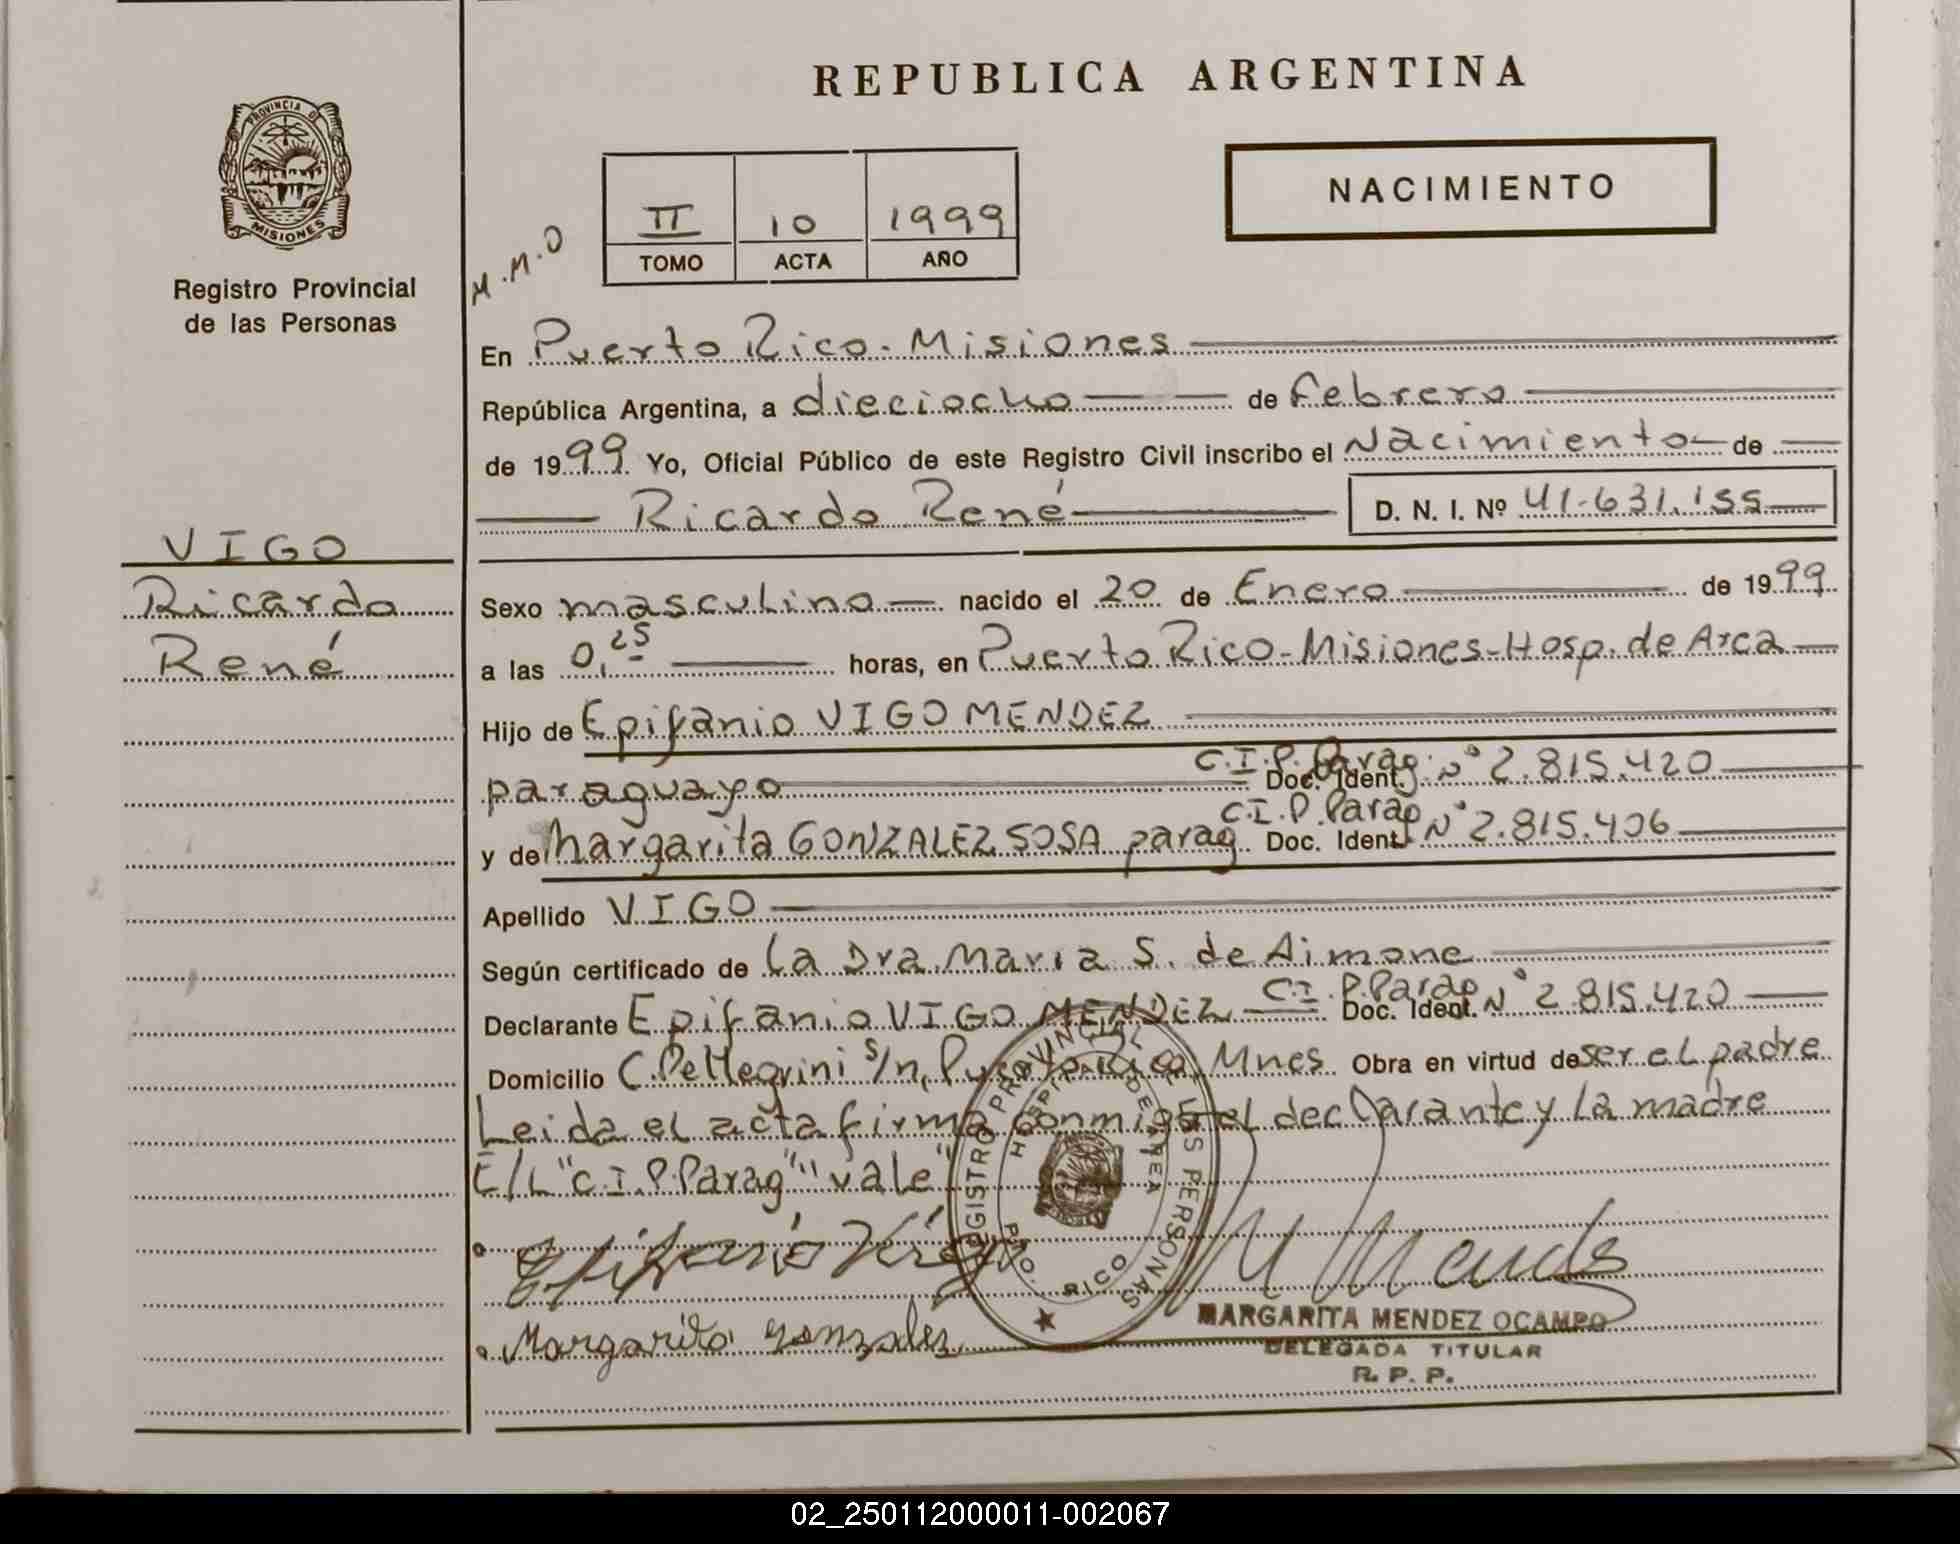 REPUBLICA ARGENTINA
PROVINCIA DE
MISIONES
Registro Provincial
de las Personas
M.M.O
II 10 1999
TOMO ACTA AÑO
NACIMIENTO
En Puerto Rico - Misiones
República Argentina, a dieciocho de febrero
de 1999 Yo, Oficial Público de este Registro Civil inscribo el Nacimiento de
Ricardo René D. N. I. Nº 41.631.155
VIGO
Ricardo
René
Sexo masculino nacido el 20 de Enero de 1999
a las 0,25 horas, en Puerto Rico - Misiones - Hosp. de Area
Hijo de Epifanio VIGO MENDEZ
paraguayo Doc. Ident. C.I.P. Parag. N° 2.815.420
y de Margarita GONZALEZ SOSA parag. Doc. Ident. C.I.P. Parag N° 2.815.406
Apellido VIGO
Según certificado de La Dra. Maria S. de Aimone
Declarante Epifanio VIGO MENDEZ Doc. Ident. C.I.P. Parag N° 2.815.420
Domicilio C. Pellegrini s/n, Puerto Rico, Mnes Obra en virtud de ser el padre
Leida el acta firma conmigo el declarante y la madre
E/L "C.I.P. Parag" "vale"
REGISTRO PROVINCIAL DE LAS PERSONAS
HOSPITAL DE AREA
PTO. RICO
Epifanio Vigo
M Mendez
Margarita Gonzalez
MARGARITA MENDEZ OCAMPO
DELEGADA TITULAR
R. P. P.
02_250112000011-002067